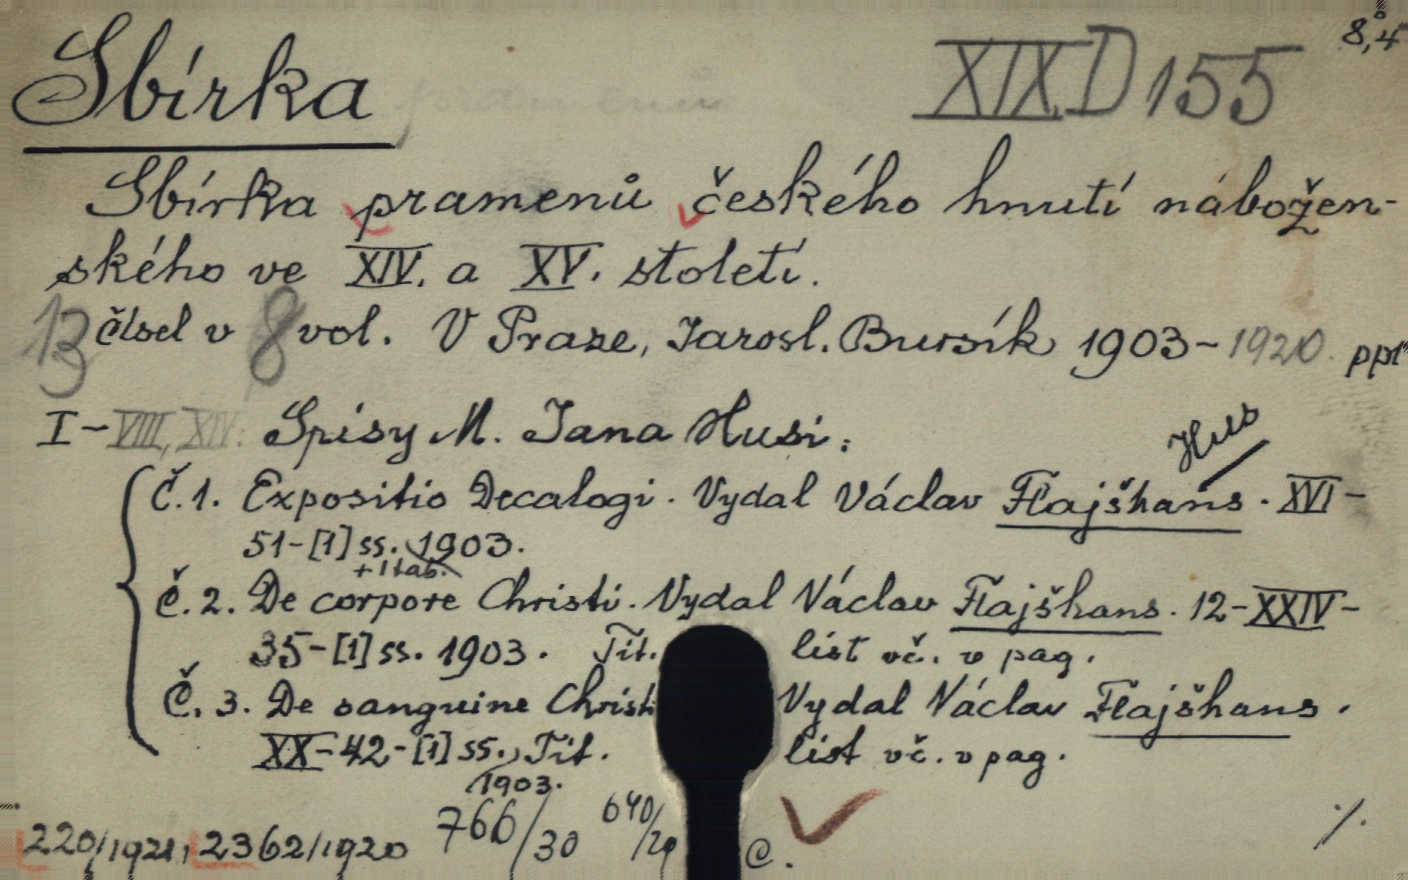 8,4°
Sbírka XIX D 155
Sbírka pramenů českého hnutí nábožen-
ského ve XIV. a XV. století.
13 čísel v 8 vol. V Praze, Jarosl. Bursík 1903-1920.
I-VIII, XIV: Spisy M. Jana Husi:
Hus
Č.1. Expositio Decalogi. Vydal Václav Flajšhans. XVI-
51-[1] ss. 1903.
+1 tab.
Č.2. De corpore Christi. Vydal Václav Flajšhans. 12-XXIV-
35-[1] ss. 1903. Tit. list vč. v pag.
Č. 3. De sanguine Christ Vydal Václav Flajšhans.
XX-42-[1] ss., Tit. list vč. v pag.
1903.
220/1921, 2362/1920 766/30 640/29 C.